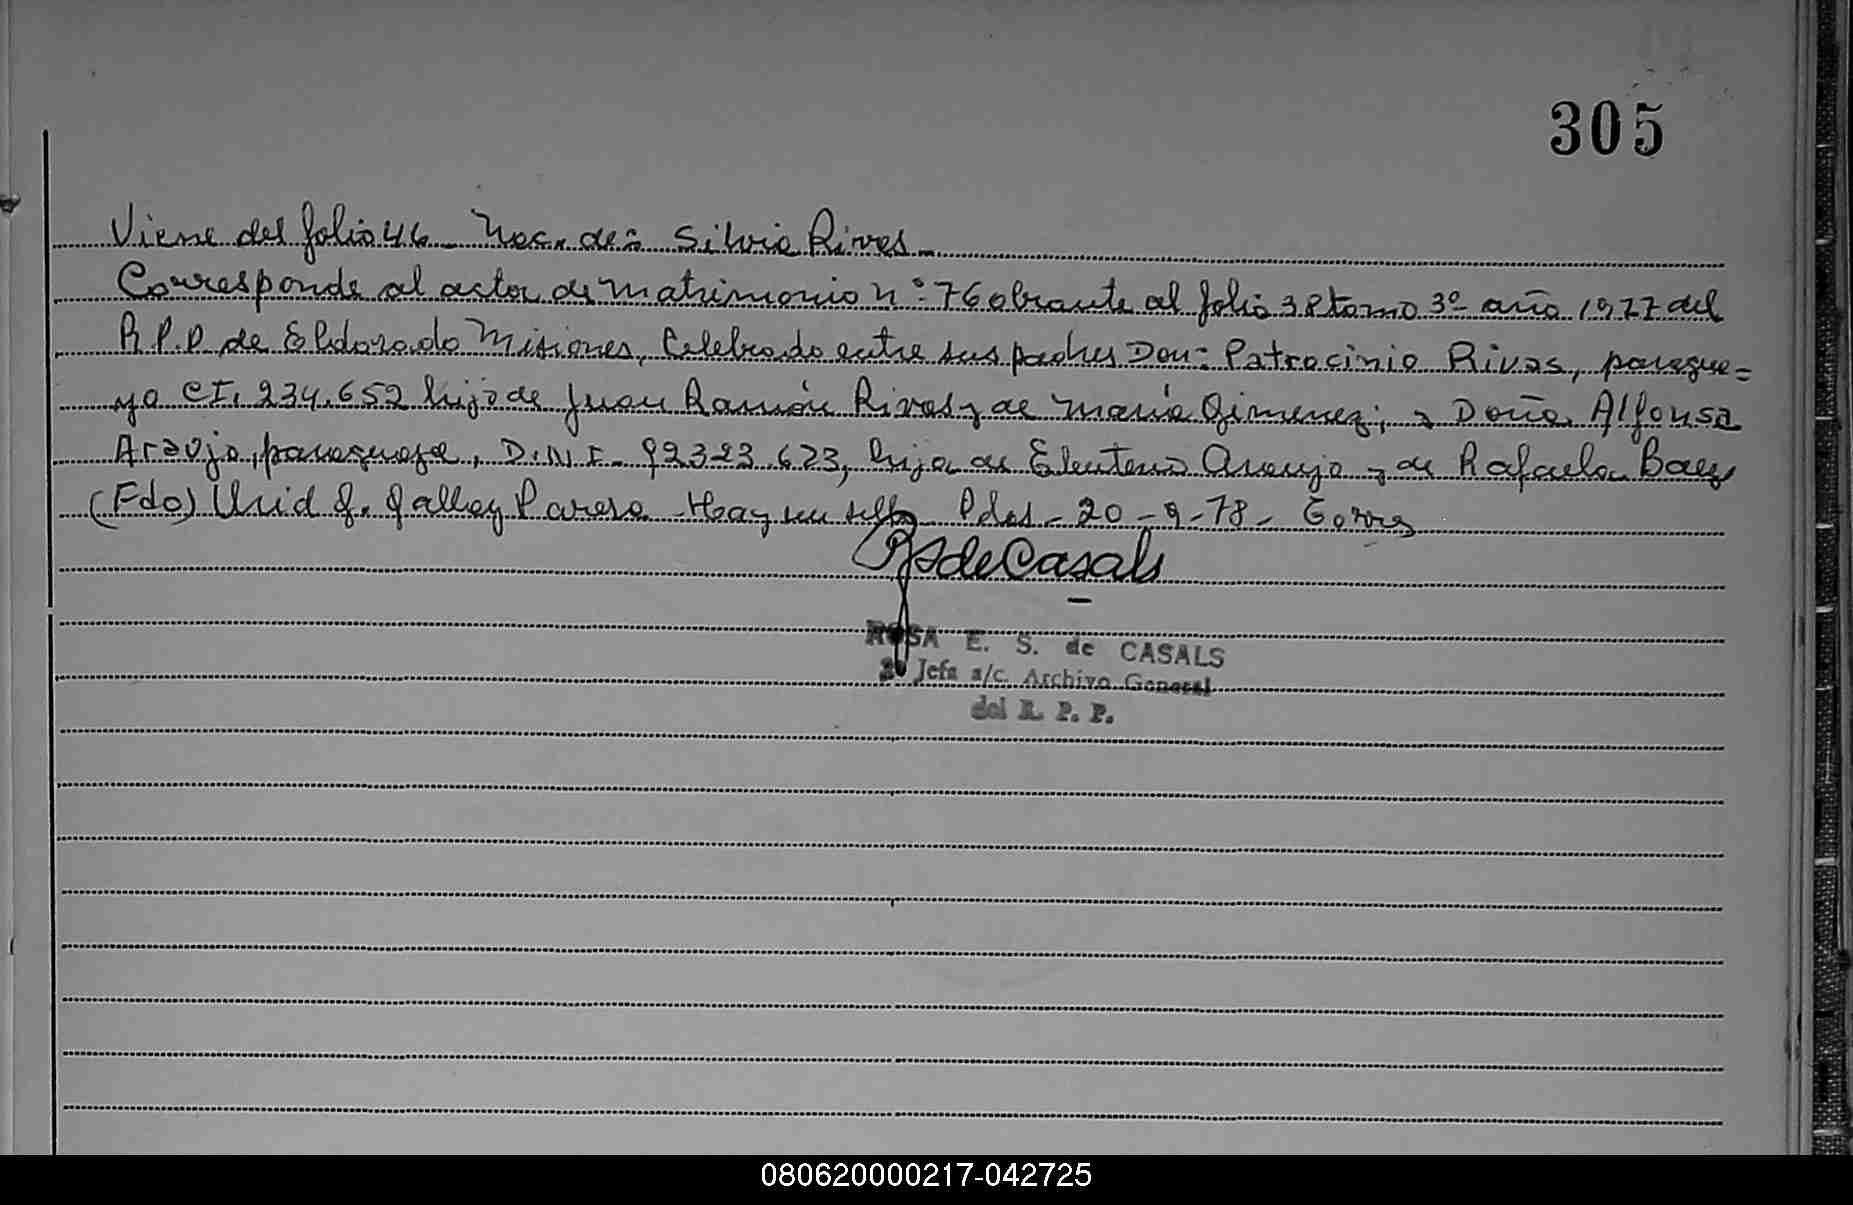 305
Viene del folio 46 - Nac. de: Silvia Rivas -
Corresponde al acta de matrimonio nº 76 obrante al folio 38 tomo 3º año 1977 del
R.P.P de Eldorado Misiones, Celebrado entre sus padres Don: Patrocinio Rivas, paragua=
yo CI. 234.652 hijo de Juan Ramón Rivas y de María Gimenez; y Doña Alfonsa
Araujo, paraguaya, D.N.I. 92323.623, hija de Eleuterio Araujo y de Rafaela Baez
(Fdo) Hay un sello Pdas - 20 - 9 - 78 - Torres
RSdeCasals
ROSA E. S. de CASALS
2º Jefa a/c. Archivo General
del R. P. P.
080620000217-042725